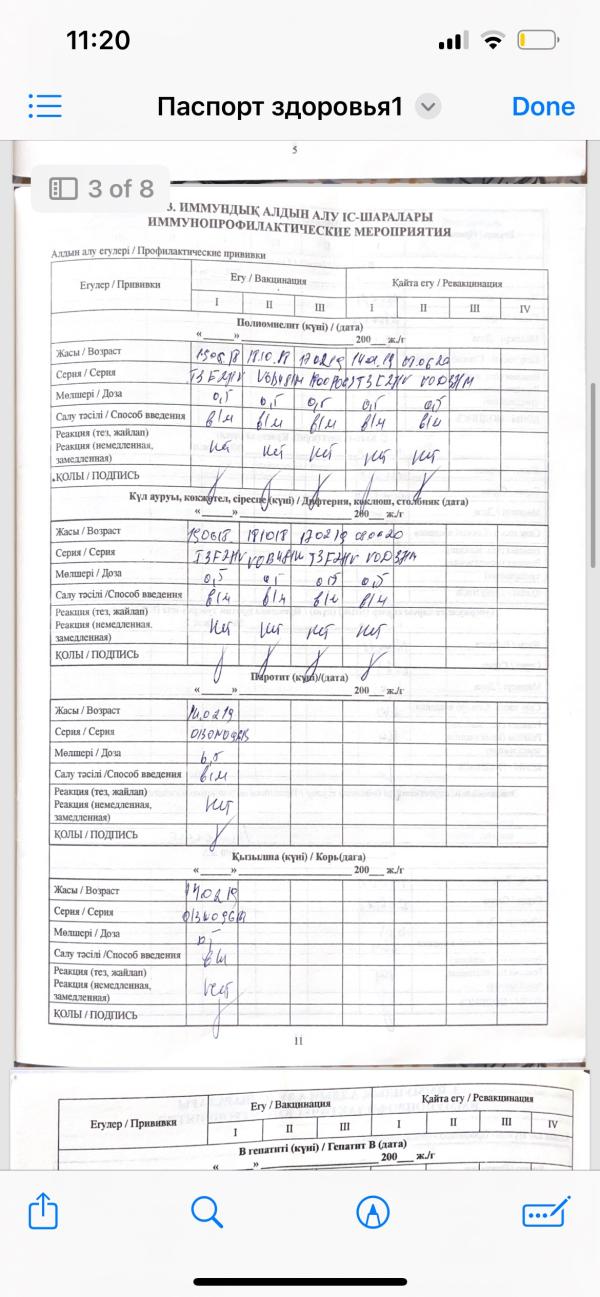 11:20
Паспорт здоровья1
Done
5
3 of 8
3. ИММУНДЫҚ АЛДЫН АЛУ ІС-ШАРАЛАРЫ
ИММУНОПРОФИЛАКТИЧЕСКИЕ МЕРОПРИЯТИЯ
Алдын алу егулері / Профилактические прививки
Егулер / Прививки Егу / Вакцинация Қайта егу / Ревакцинация
I II III I II III IV
Полиомиелит (күні) / (дата)
«______»______ 200___ ж./г
Жасы / Возраст 150618 181018
Серия / Серия
Мөлшері / Доза 0,5 0,5 0,5 0,5 0,5
Салу тәсілі / Способ введения в/м в/м в/м в/м в/м
Реакция (тез, жайлап)
Реакция (немедленная, нет нет нет нет нет
замедленная)
ҚОЛЫ / ПОДПИСЬ
Күл ауруы, көкжөтел, сіреспе (күні) / Дифтерия, коклюш, столбняк (дата)
«______»______ 200___ ж./г
Жасы / Возраст 150618 181018
Серия / Серия
Мөлшері / Доза 0,5 0,5 0,5 0,5
Салу тәсілі /Способ введения в/м в/м в/м в/м
Реакция (тез, жайлап)
Реакция (немедленная, нет нет нет нет
замедленная)
ҚОЛЫ / ПОДПИСЬ
Паротит (күні)/(дата)
«______»______ 200___ ж./г
Жасы / Возраст 140219
Серия / Серия
Мөлшері / Доза 0,5
Салу тәсілі /Способ введения в/м
Реакция (тез, жайлап)
Реакция (немедленная, нет
замедленная)
ҚОЛЫ / ПОДПИСЬ
Қызылша (күні) / Корь(дата)
«______»______ 200___ ж./г
Жасы / Возраст 140219
Серия / Серия
Мөлшері / Доза 0,5
Салу тәсілі /Способ введения в/м
Реакция (тез, жайлап)
Реакция (немедленная, нет
замедленная)
ҚОЛЫ / ПОДПИСЬ
11
Егулер / Прививки Егу / Вакцинация Қайта егу / Ревакцинация
I II III I II III IV
В гепатиті (күні) / Гепатит В (дата)
«______»______ 200___ ж./г